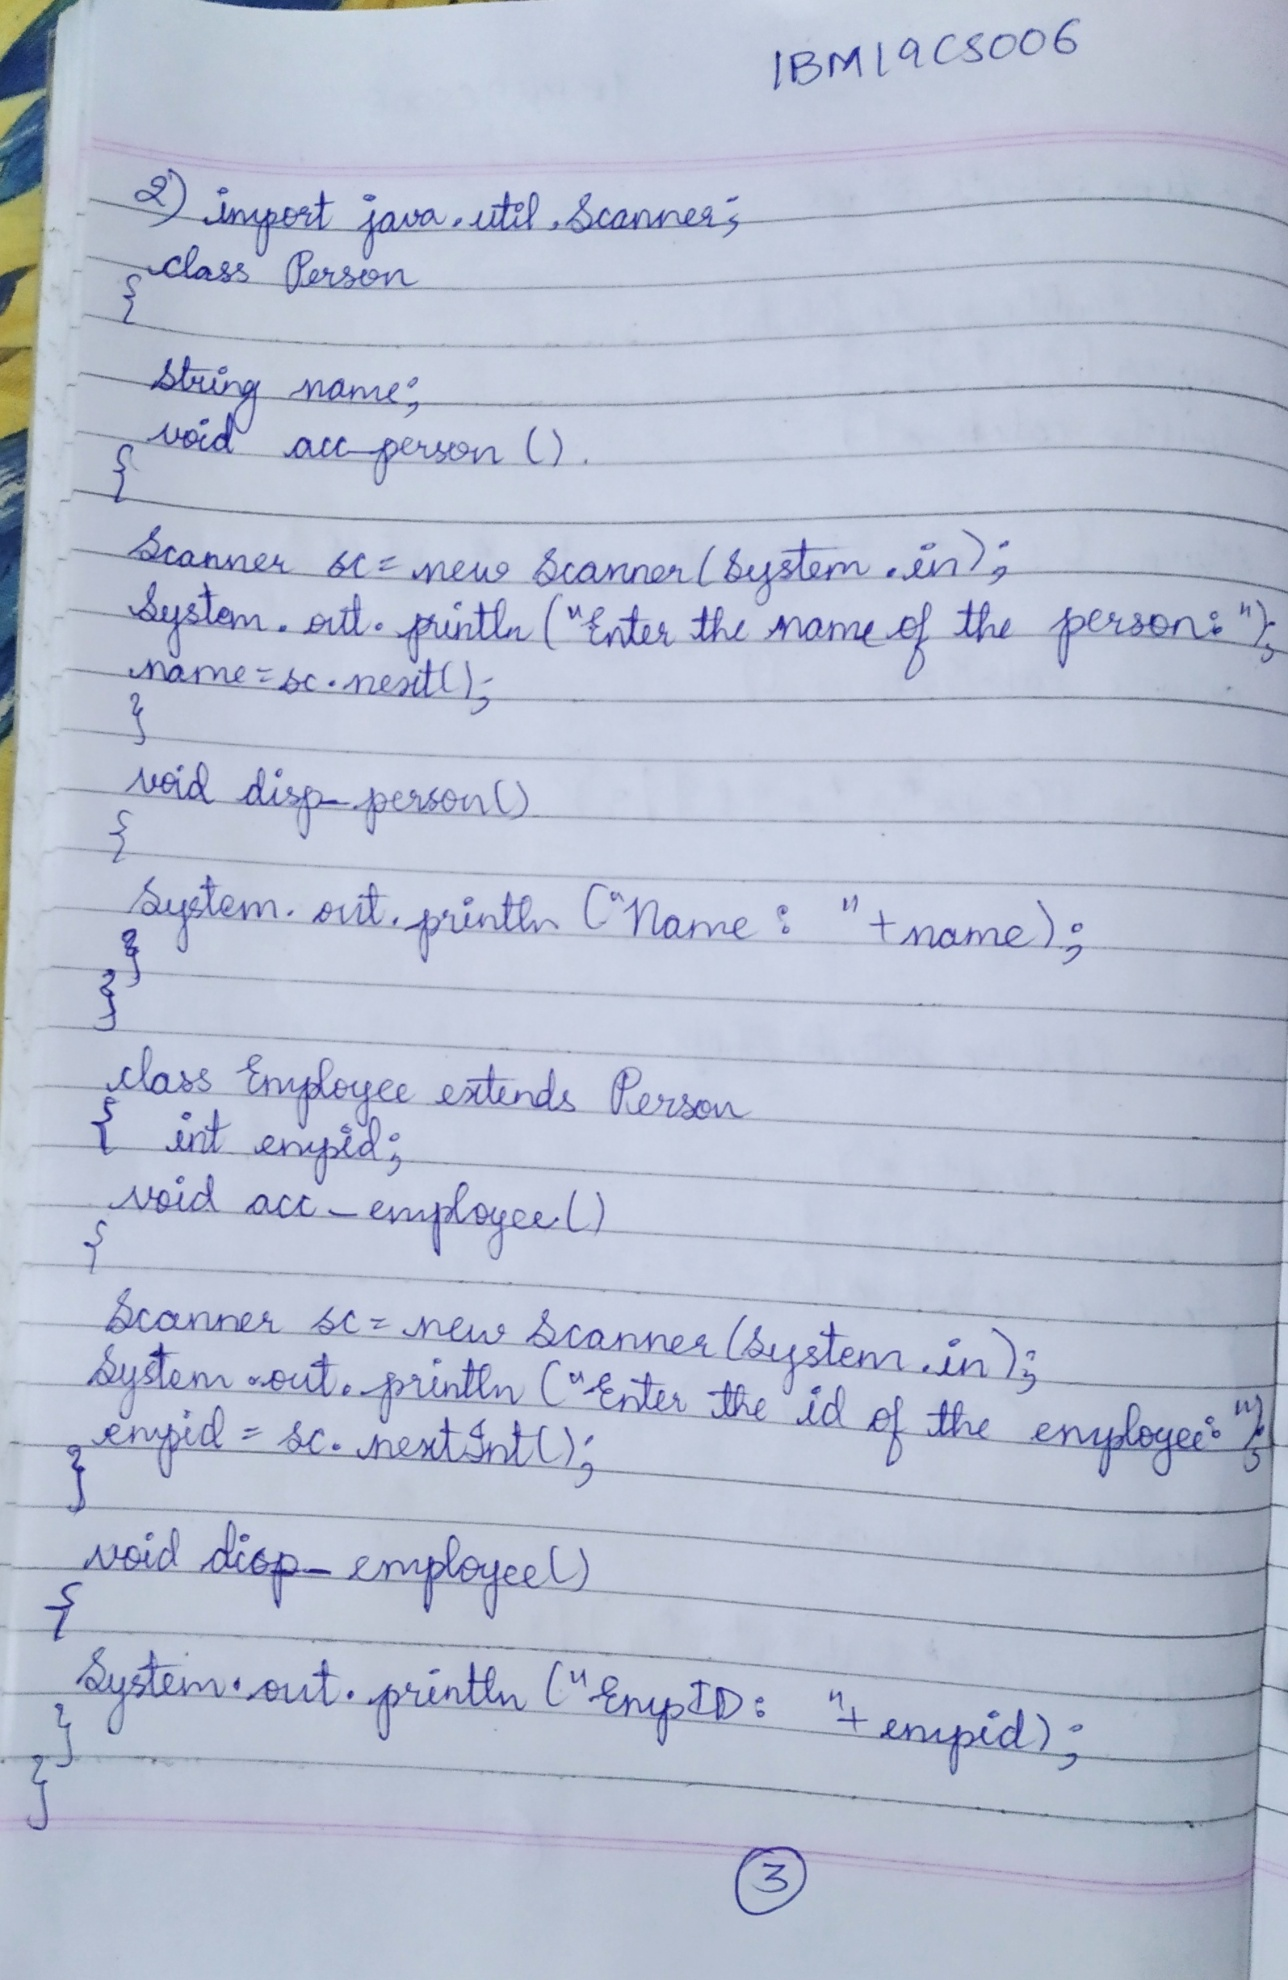 1BM19CS006
2) import java.util.Scanner;
class Person
{
String name;
void acc_person ()
{
Scanner sc = new Scanner(System.in);
System.out.println ("Enter the name of the person: ");
name = sc.next();
}
void disp_person()
{
System.out.println ("Name : " + name);
}
}
class Employee extends Person
{ int empid;
void acc_employee()
{
Scanner sc = new Scanner(System.in);
System.out.println ("Enter the id of the employee: ");
empid = sc.nextInt();
}
void disp_employee()
{
System.out.println ("EmpID: " + empid);
}
}
3